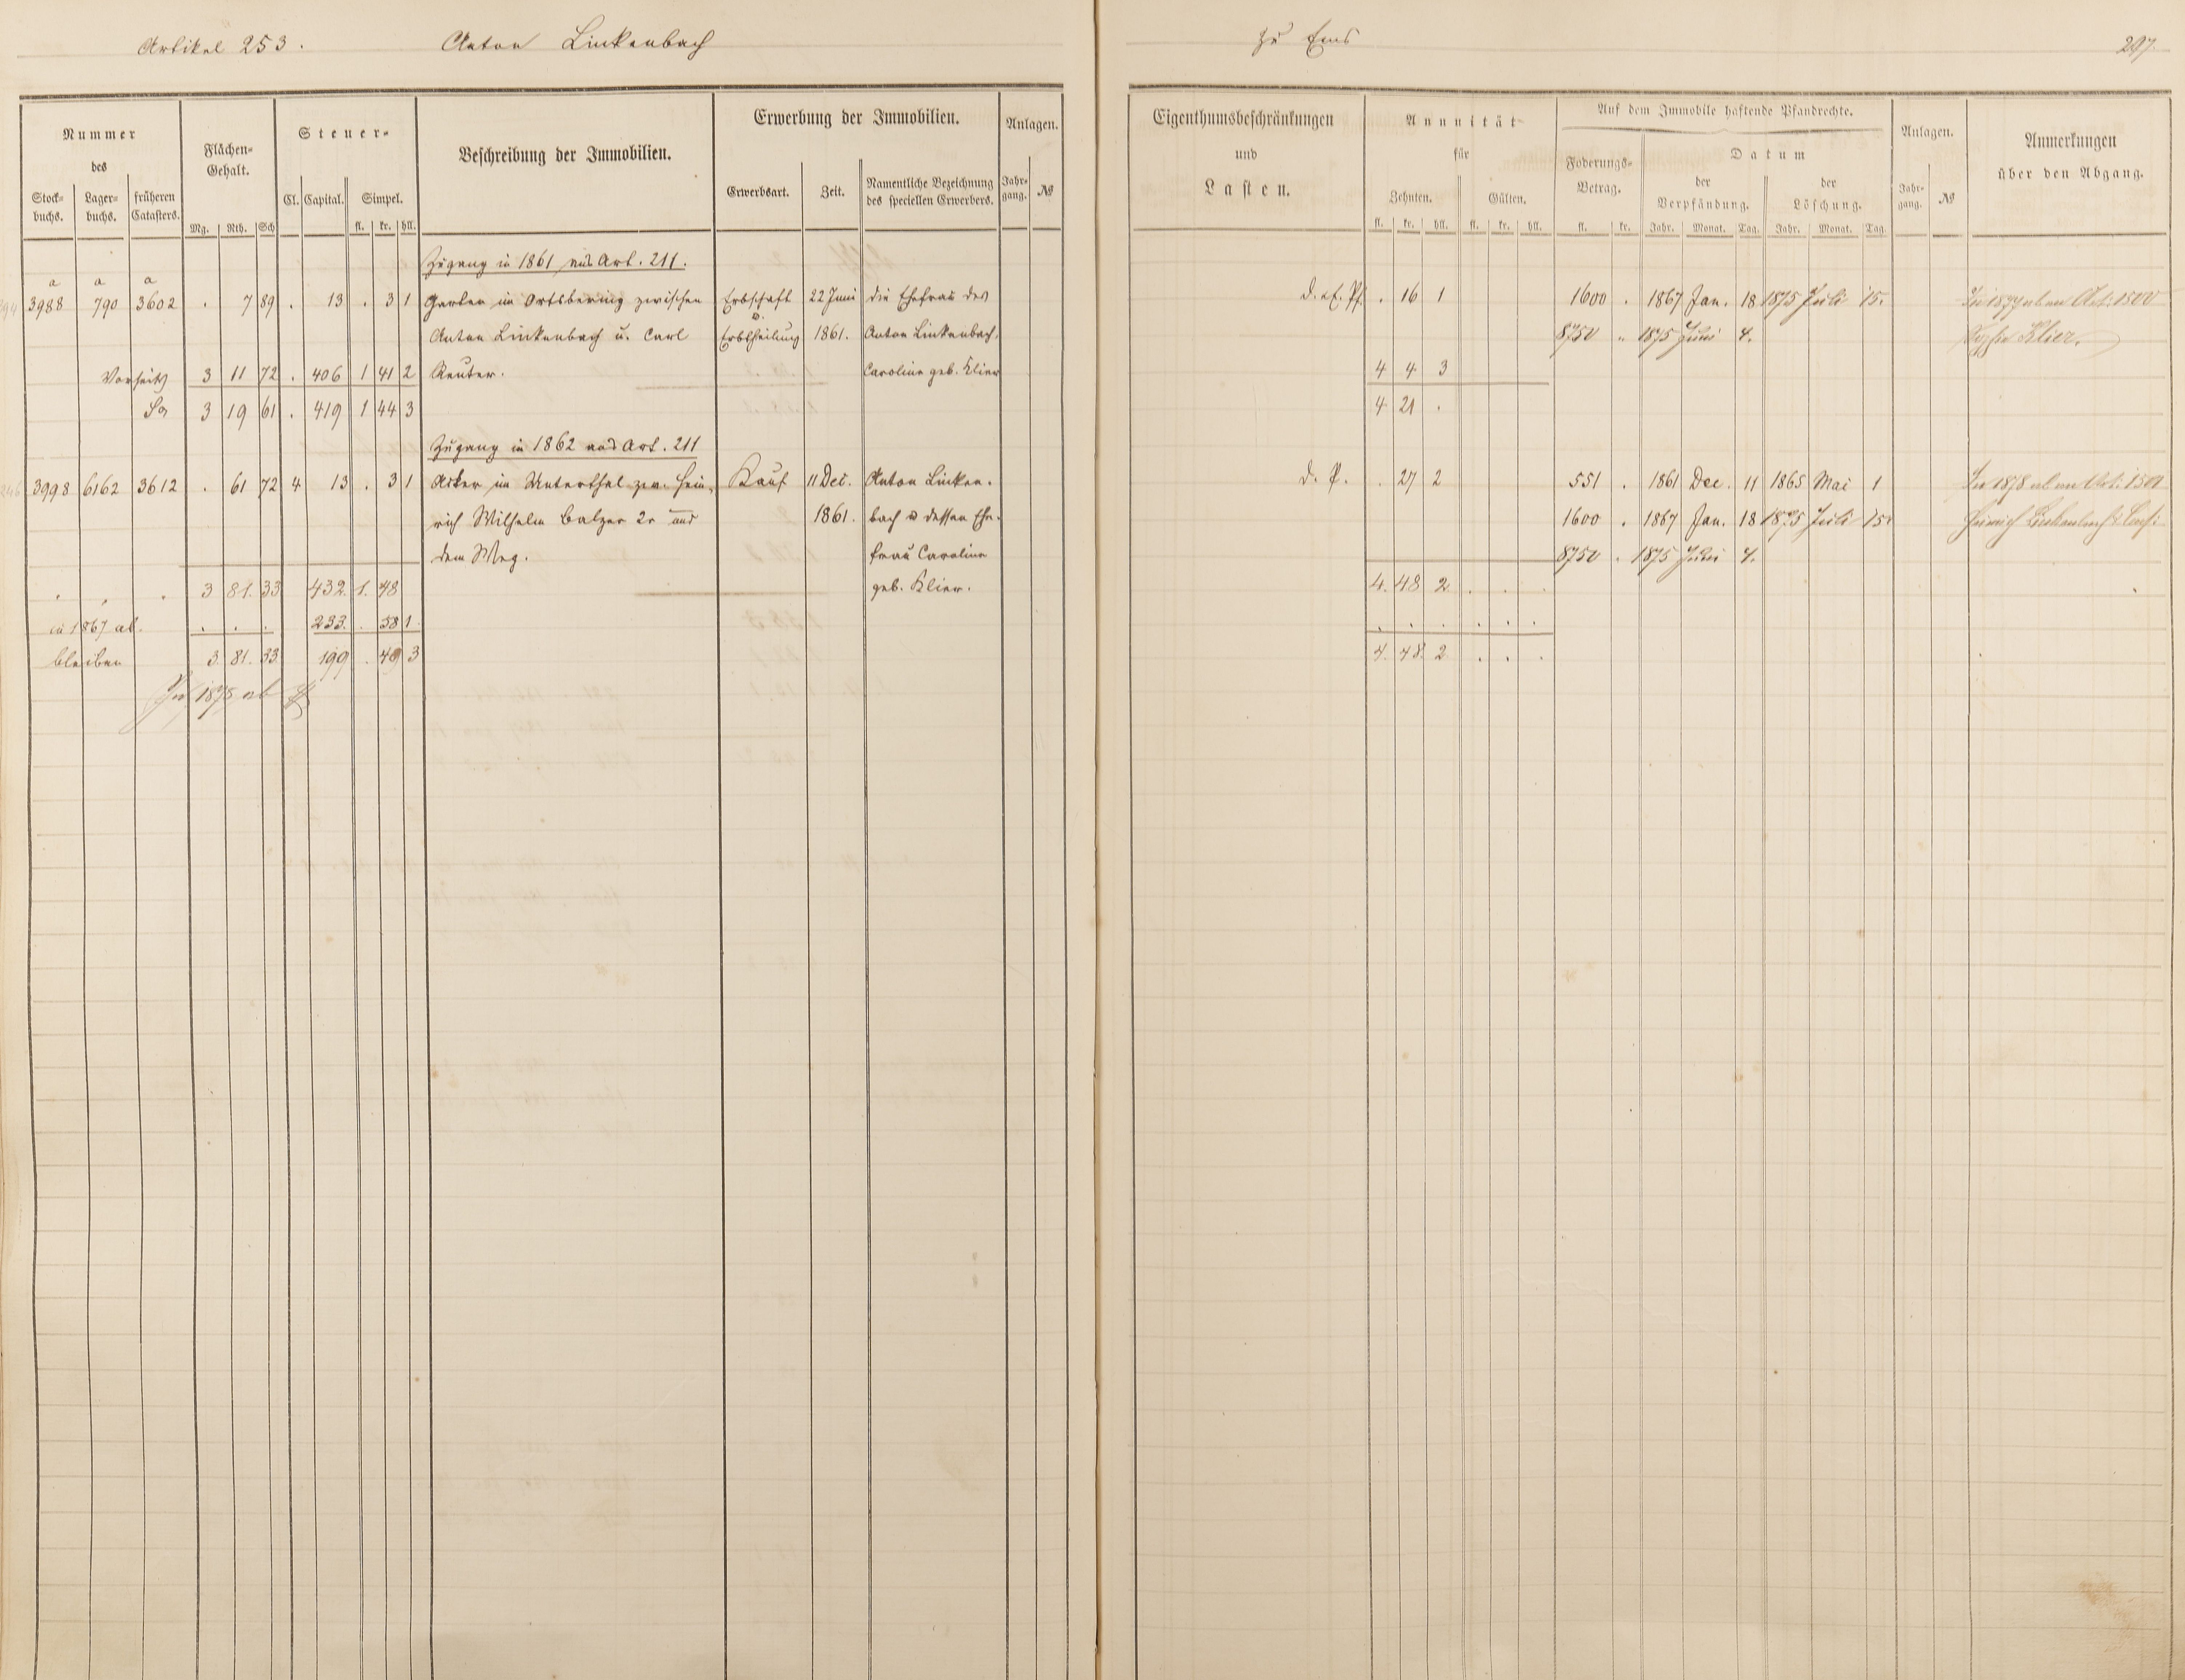 Artikel 253. Anton Linkenbach zu Ems 297.
Nummer des
Stock-buchs. Lager-buchs. früheren Catasters.
Flächen-Gehalt.
Mg. Rth. Sch
Steuer-
Cl. Capital. Simpel.
fl. kr. hll.
Beschreibung der Immobilien.
Erwerbung der Immobilien.
Erwerbsart. Zeit. Namentliche Bezeichnung des speciellen Erwerbers.
Anlagen.
Jahr-gang. №
Eigenthumsbeschränkungen
und
Lasten.
Annuität
für
Zehnten. Gülten.
fl. kr. hll. fl. kr. hll.
Auf dem Immobile haftende Pfandrechte.
Foderungs-Betrag.
fl. kr.
Datum
der Verpfändung. der Löschung.
Jahr. Monat. Tag. Jahr. Monat. Tag.
Anlagen.
Jahr-gang. №
Anmerkungen
über den Abgang.
Zugang in 1861 aus Art. 211.
a a a
3988 790 3602 . 7 89 . 13 . 3 1 Garten im Ortsbering zwischen Erbschaft 22 Juni die Ehefrau des d. . 16 1 1600 . 1867 Jan. 18 1875 Juli 15. In 1877 ab an Art. 1500
u.
Anton Linkenbach u. Carl Erbtheilung 1861. Anton Linkenbach, 8750 " 1875 Juni 4. Klier.
Vorseite 3 11 72 . 406 1 41 2 Reuter. Caroline geb. Klier 4 4 3
Sa 3 19 61 . 419 1 44 3 4 21 .
Zugang in 1862 aus Art. 211
3998 6162 3612 . 61 72 4 13 . 3 1 Acker im Unterthal zw. Hein- Kauf 11 Dec. Anton Linken- d. P. . 27 2 551 . 1861 Dec. 11 1865 Mai 1 In 1878 ab an Art. 1501
rich Wilhelm Balzer 2r und 1861. bach u dessen Ehe- 1600 . 1867 Jan. 18 1875 Juli 15. Heinrich Linkenbach
dem Weg. frau Caroline 8750 . 1875 Juni 4.
. . . 3 81. 33 432. 1. 48 geb. Klier. 4. 48 2 . . .
in 1867 ab. . . . 233. . 58 1. . . . . . .
bleiben 3. 81. 33. 199 . 49 3 4. 48. 2 . . .
In 1875 ab